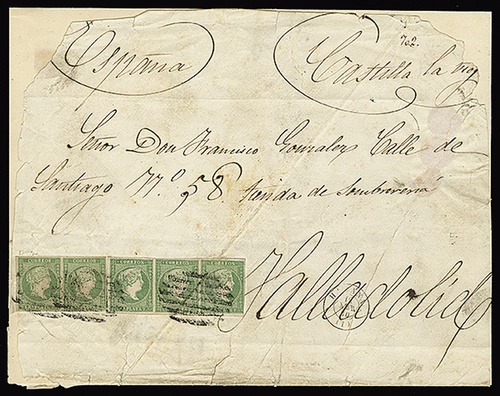 702.
España Castilla la
Señor Don Francisco Gonzales Calle de
Santiago Nº 58 tienda de Sombrereria
Valladolid
CORREOS CORREOS CORREOS CORREOS CORREOS